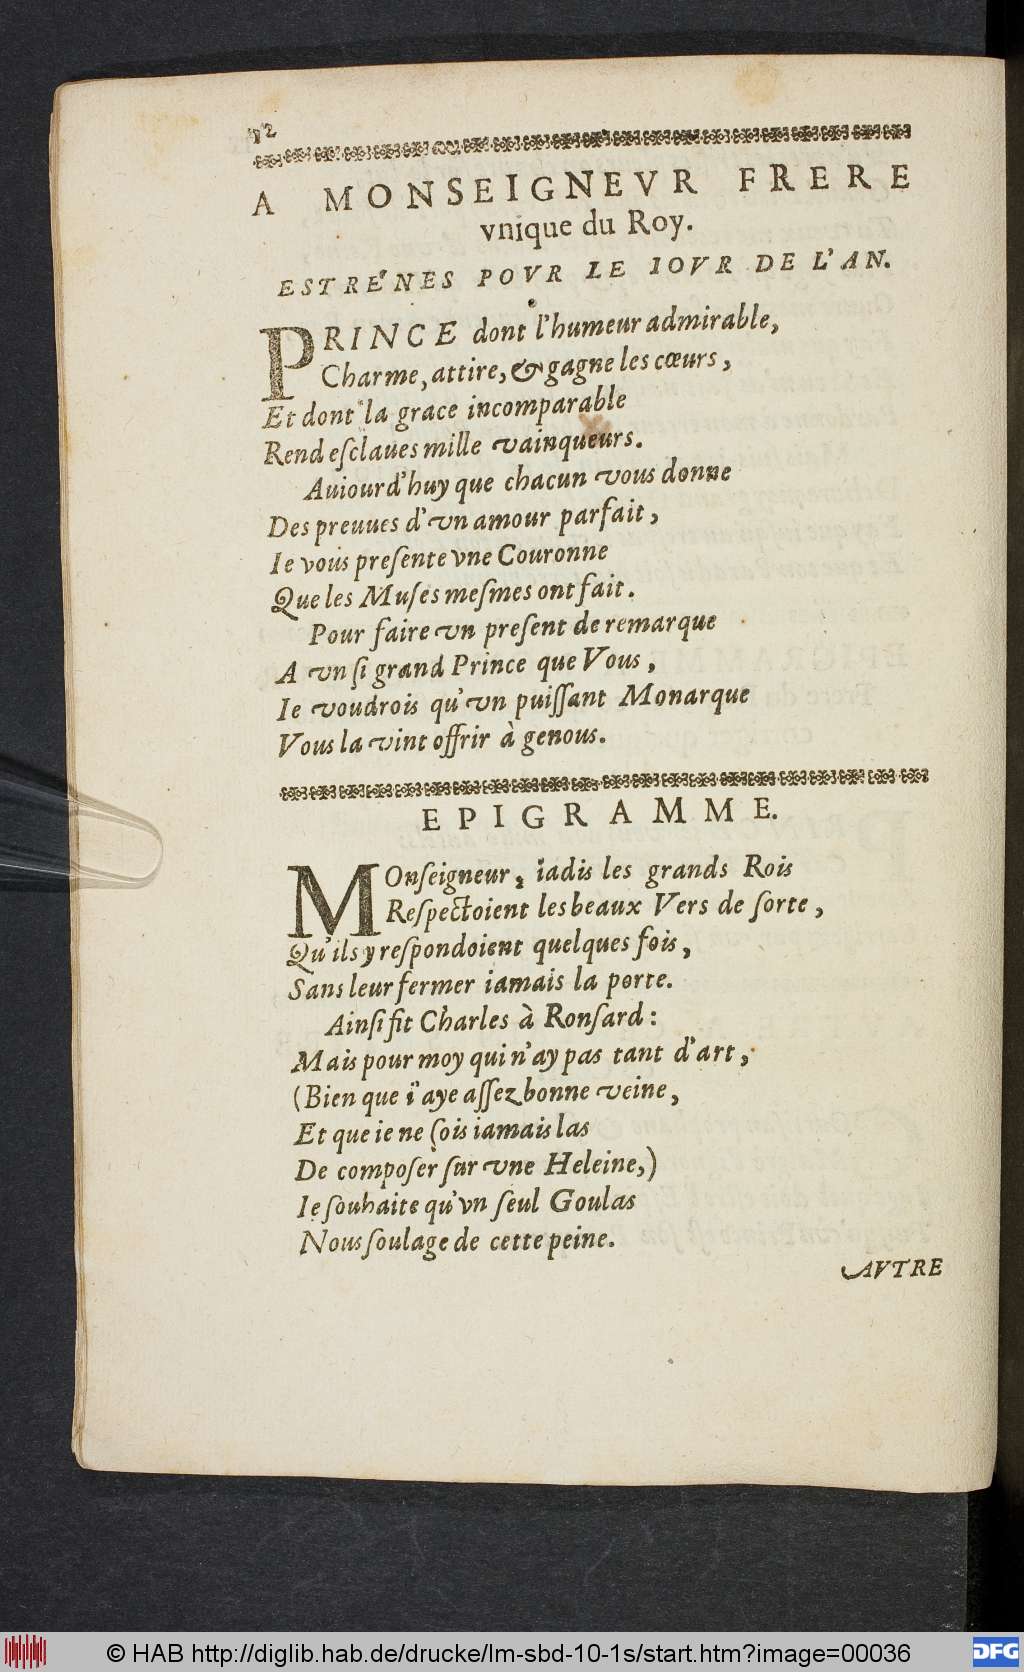 12
A MONSEIGNEVR FRERE
vnique du Roy.
ESTRE'NES POVR LE IOVR DE L'AN.
PRINCE dont l'humeur admirable,
Charme, attire, & gagne les cœurs,
Et dont la grace incomparable
Rend eſclaues mille vainqueurs.
Auiourd'huy que chacun vous donne
Des preuues d'vn amour parfait,
Ie vous preſente vne Couronne
Que les Muſes meſmes ont fait.
Pour faire vn preſent de remarque
A vn ſi grand Prince que Vous,
Ie voudrois qu'vn puiſſant Monarque
Vous la vint offrir à genous.
EPIGRAMME.
MOnſeigneur, iadis les grands Rois
Reſpectoient les beaux Vers de ſorte,
Qu'ils y reſpondoient quelques fois,
Sans leur fermer iamais la porte.
Ainſi fit Charles à Ronſard:
Mais pour moy qui n'ay pas tant d'art,
(Bien que i'aye aſſez bonne veine,
Et que ie ne ſois iamais las
De compoſer ſur vne Heleine,)
Ie ſouhaite qu'vn ſeul Goulas
Nous ſoulage de cette peine.
AVTRE
© HAB http://diglib.hab.de/drucke/lm-sbd-10-1s/start.htm?image=00036
DFG